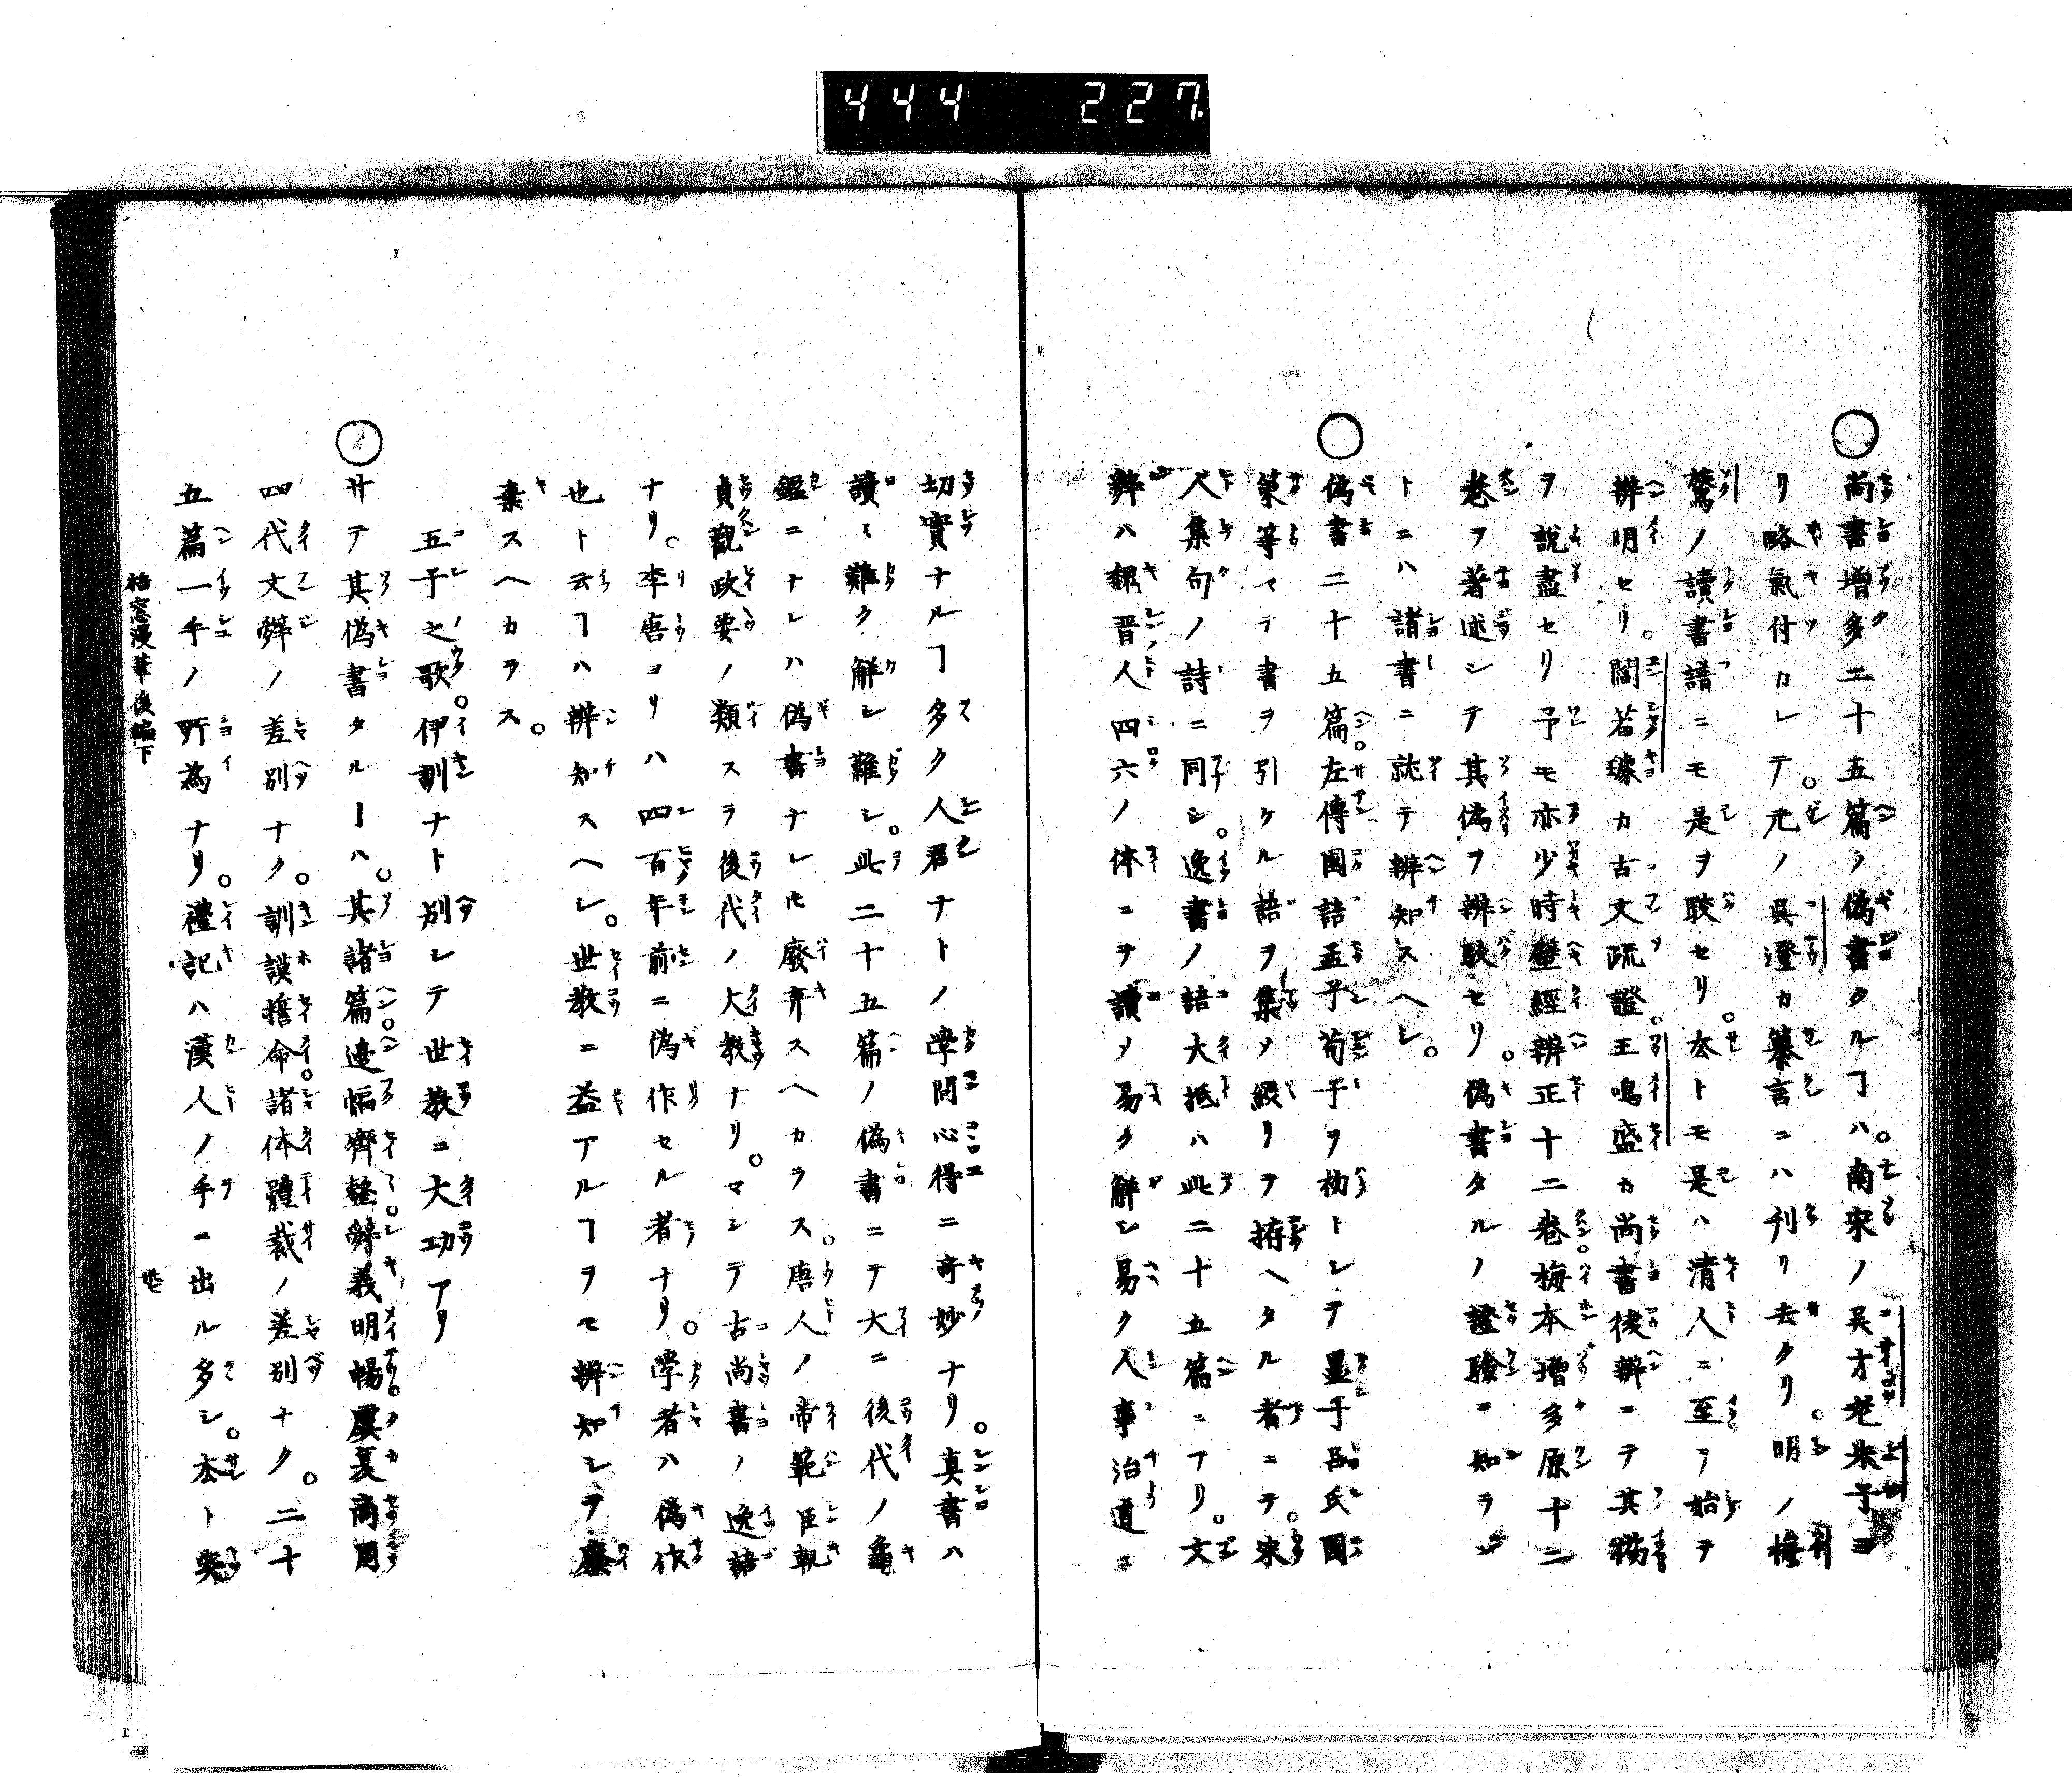 444 227
○尚書増多二十五篇ノ偽書タルヿハ。南宋ノ呉才老朱子ヨ
リ略氣付カレテ。元ノ呉澄カ纂言ニハ刊リ去タリ。明ノ梅
鷟ノ讀書譜ニモ是ヲ駁セリ。𠫵トモ是ハ清人ニ至テ始テ
辨明セリ。閻若璩カ古文疏證。王鳴盛カ尚書後辨ニテ其
ヲ説盡セリ予モ亦少時壁經辨正十二巻。梅本増多原十二
巻ヲ著述シテ其偽ヲ辨駁セリ。偽書タルノ證驗ヲ知ラン
トニハ諸書ニ就テ辨知スヘシ。
○偽書二十五篇。左傳國語孟子荀子ヲ初トシテ墨子呂氏國
策等マテ書ヲ引ケル語ヲ集メ綴リテ拵ヘタル者ニテ。宋
人集句ノ詩ニ同シ。逸書ノ語大抵ハ此二十五篇ニアリ。文
辤ハ魏晋人四六ノ体ニヲ讀メ易ク解シ易ク人事治道ニ
切實ナルヿ多ク人君ナトノ學問心得ニ奇妙ナリ。真書ハ
讀ミ難ク解シ難シ。此二十五篇ノ偽書ニテ大ニ後代ノ龜
鑑ニナレハ偽書ナレ𪜈廢弃スヘカラス。唐人ノ帝範臣軌
貞觀政要ノ類スラ後代ノ大教ナリ。マシテ古尚書ノ逸語
ナリ。李唐ヨリハ四百年前ニ偽作セル者ナリ。學者ハ偽作
也ト云ヿハ辨知スヘシ。世教ニ益アルヿヲモ辨知シテ廢
棄スヘカラス。
五子之歌。伊訓ナト別シテ世教ニ大功アリ
○サテ其偽書タル一ハ。其諸篇。邉幅齊整。辤義明暢。虞夏商周
四代文辤ノ差別ナク。訓謨誓命。諸体體裁ノ差別ナク。二十
五篇一手ノ所為ナリ。禮記ハ漢人ノ手ニ出ル多シ。𠫵ト
梧窓漫筆後編下